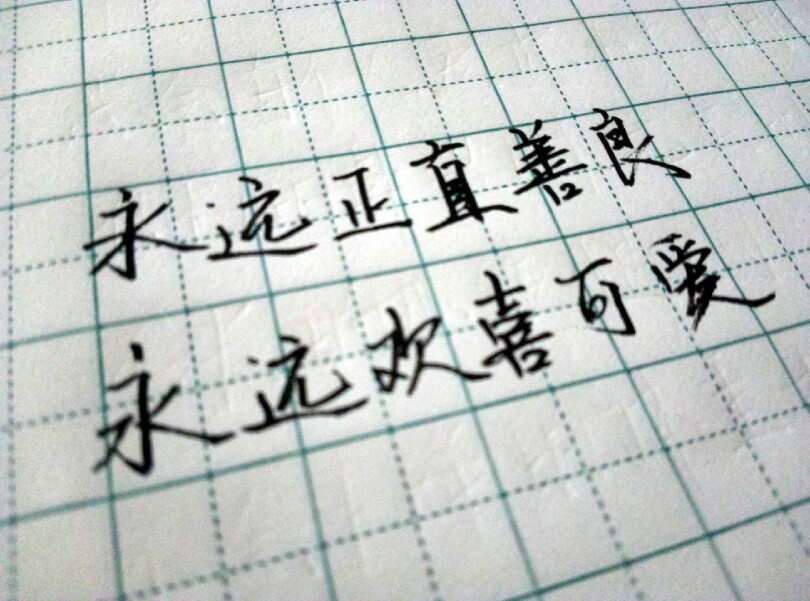 永远正直善良
永远欢喜可爱